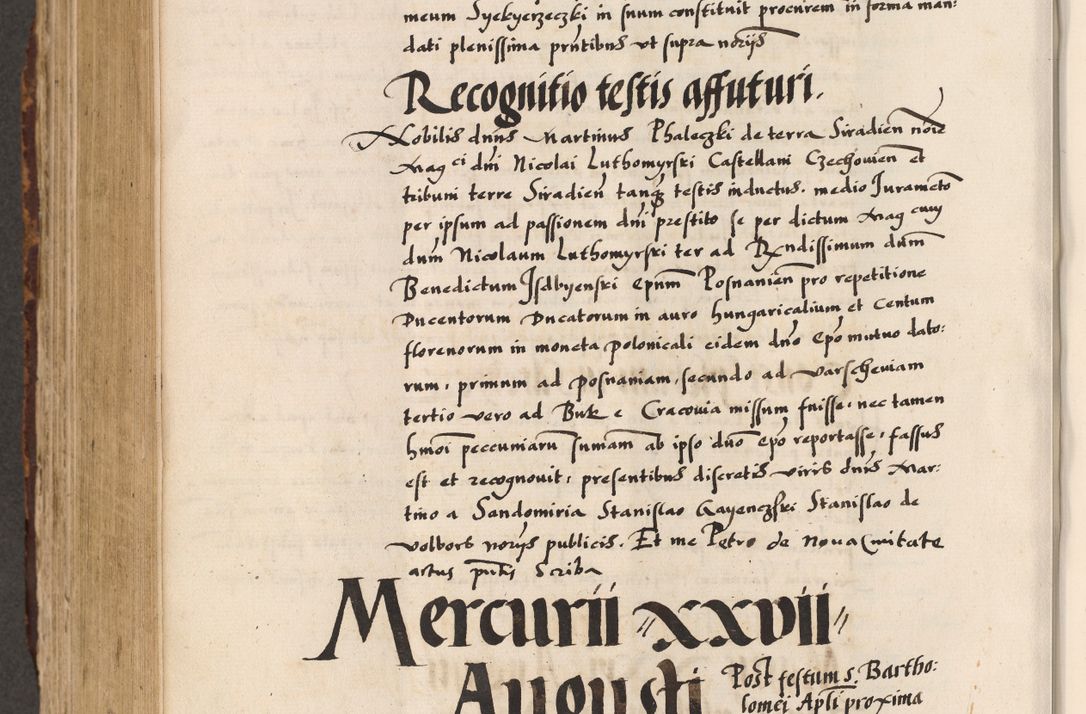 meum Syekyerzeczki in suum constituit procurem in forma man-
dati plenissima pntibus ut supra noriis
Recognitio testis affuturi.
Nobilis dnus Martinus Phaleczki de terra Siradien noie
Mag ci dni Nicolai Luthomyrski Castellani Czechovien et
tribuni terre Siradien tanq testis inductus. medio Juramēto
per ipsum ad passionem dni prestito se per dictum Mag cum
dnum Nicolaum Luthomyrski ter ad Rndissimum dnum
Benedictum Isdbyenski epum Posnanien pro repetitione
Ducentorum Ducatorum in auro hungaricalium et Centum
florenorum in moneta polonicali eidem dno epo mutuo dato:
rum, primum ad posnaniam, secundo ad varscheviam
tertio vero ad Buk e Cracovia missum fuisse, nec tamen
hmoi peccuniaru sumam ab ipso dno epo reportasse, fassus
est et recognovit, presentibus discretis viris dnis Mar:
tino a Sandomiria Stanislao Gayenczski Stanislao de
volbors noriis publicis. Et me Petro de Nova Civitate
actus pntis scriba
Mercurii xxvii
Augusti Post festum s. Bartho:
lomei Apli proxima